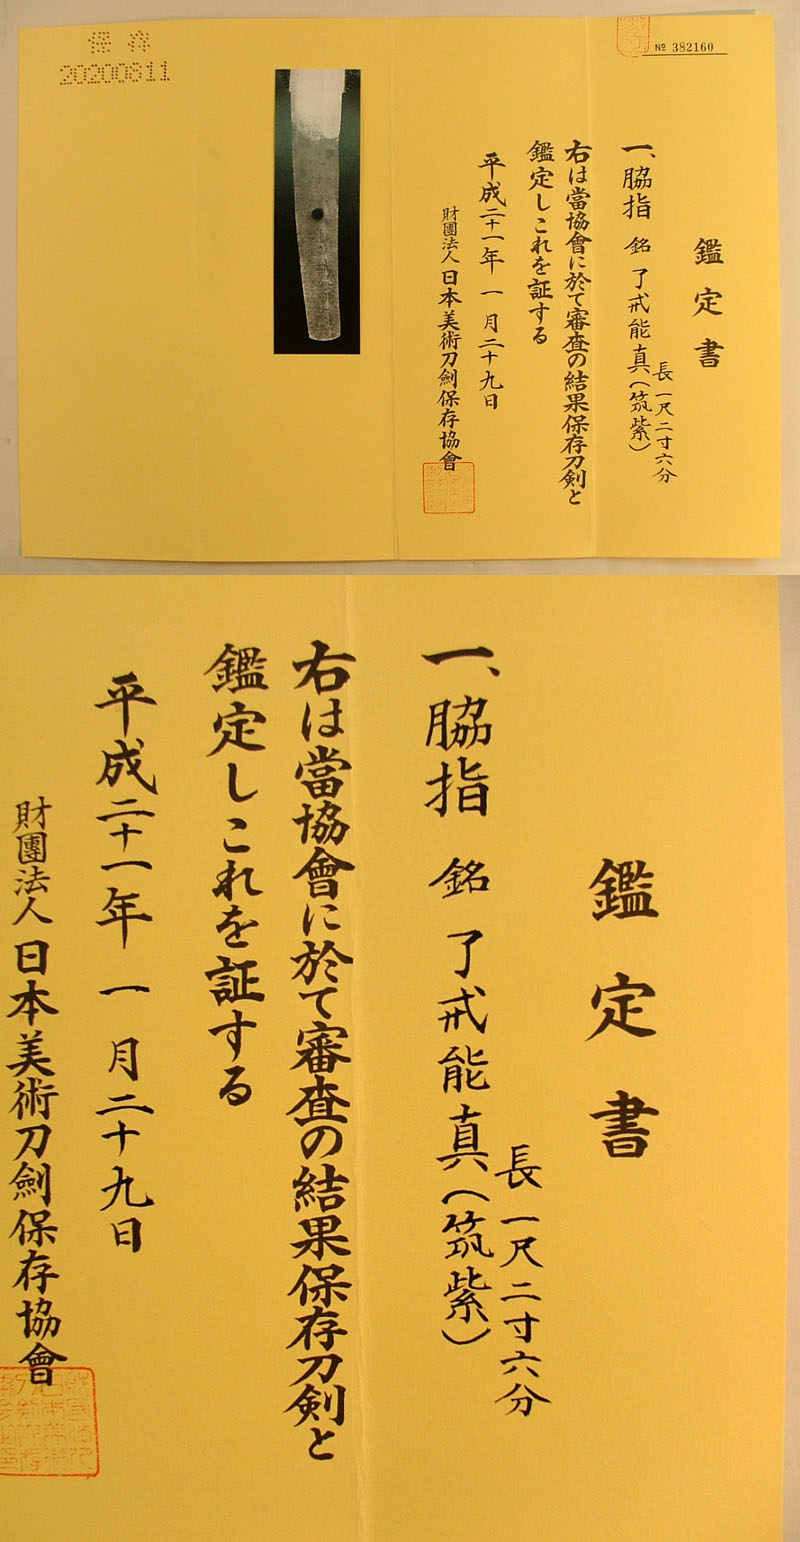 保存
20200811
№ 382160
鑑定書
一、脇指 銘 了戒能真(筑紫)
長一尺二寸六分
右は當協會に於て審査の結果保存刀剣と
鑑定しこれを証する
平成二十一年 一月二十九日
財團法人 日本美術刀劍保存協會
鑑定書
一、脇指 銘 了戒能真(筑紫)
長一尺二寸六分
右は當協會に於て審査の結果保存刀剣と
鑑定しこれを証する
平成二十一年 一月二十九日
財團法人 日本美術刀劍保存協會